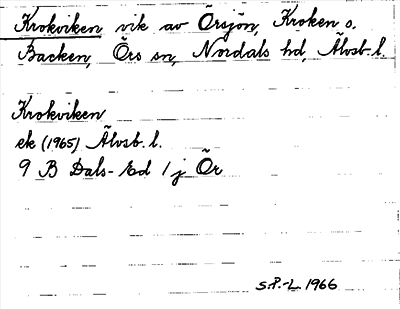 Krokviken vik av Örsjön, Kroken o.
Backen, Örs sn, Nordals hd, Älvsb. l.
Krokviken
ek (1965) Älvsb. l.
9 B Dals-Ed 1 j Ör
S.P.-L 1966